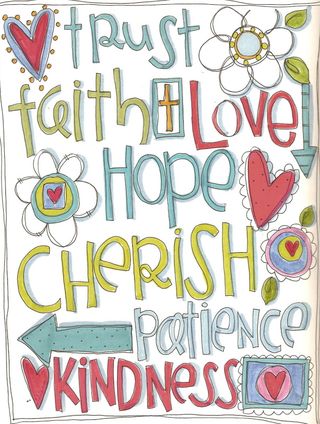 trust
faith Love
Hope
CHERISH
patience
KINDNESS